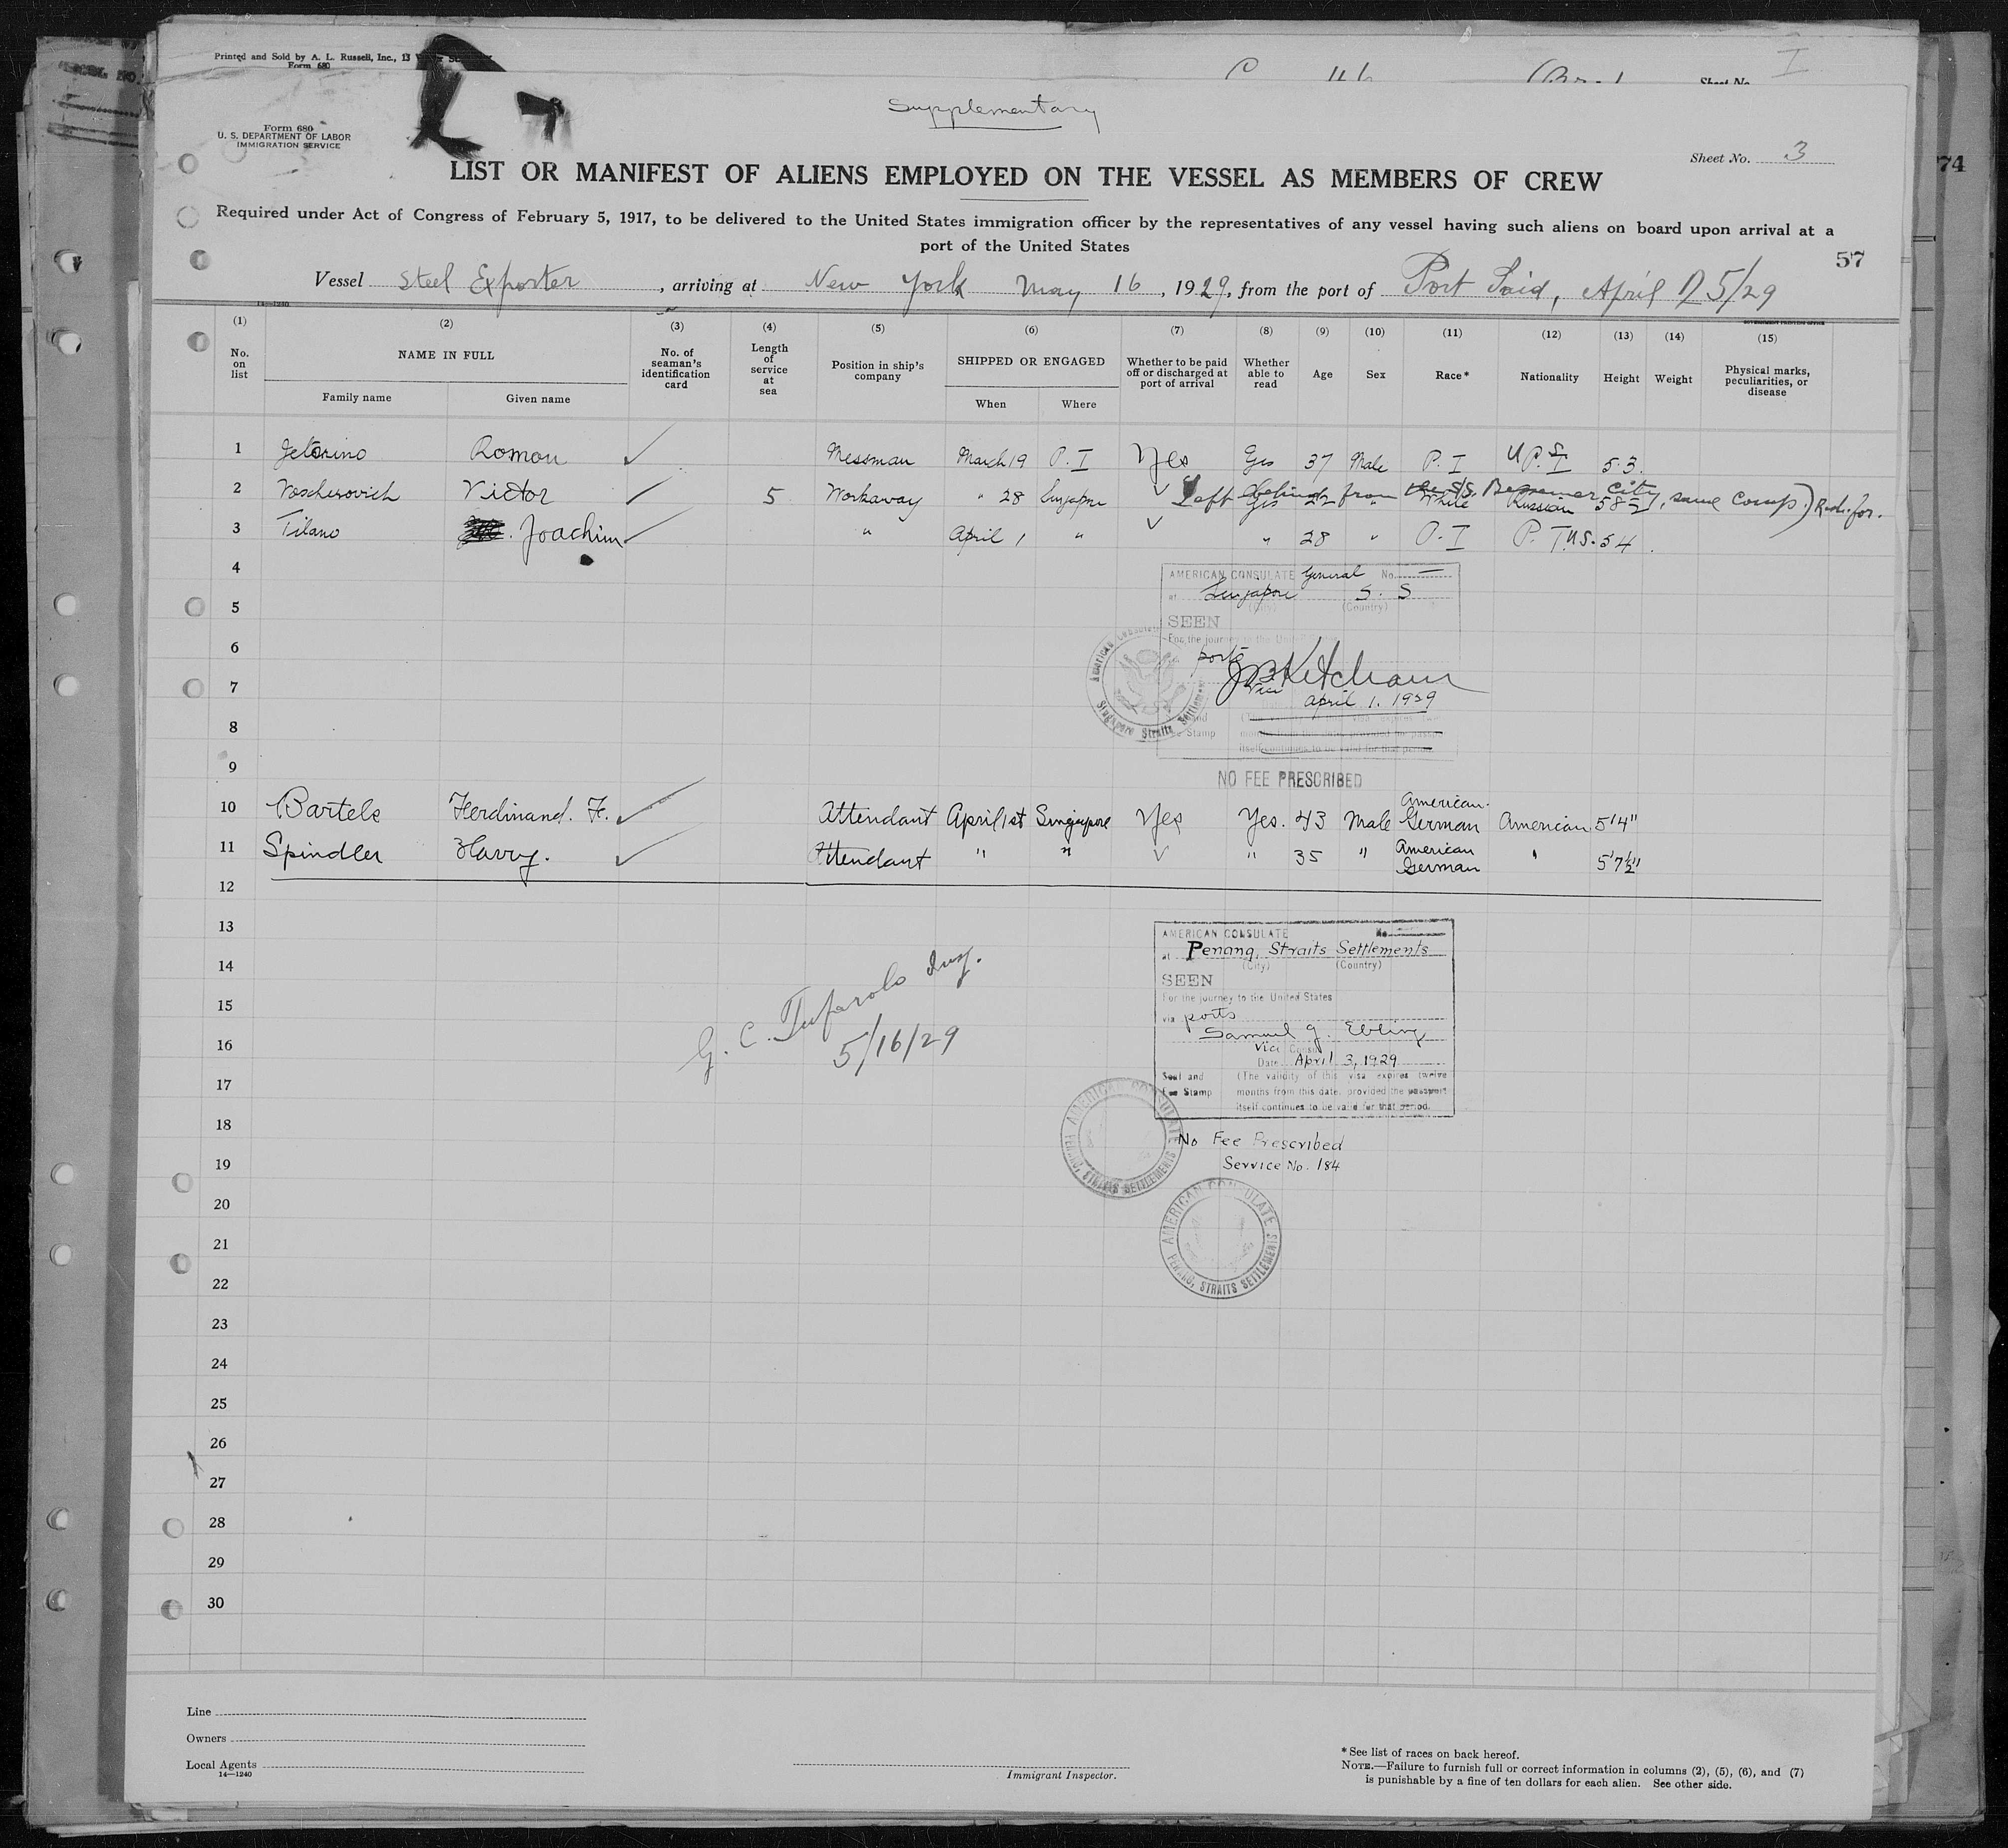 Printed and Sold by A. L. Russell, Inc., 13
Form 680
Sheet No. I
Supplementary
Form 680
U. S. DEPARTMENT OF LABOR
IMMIGRATION SERVICE
Sheet No. 3
74
LIST OR MANIFEST OF ALIENS EMPLOYED ON THE VESSEL AS MEMBERS OF CREW
Required under Act of Congress of February 5, 1917, to be delivered to the United States immigration officer by the representatives of any vessel having such aliens on board upon arrival at a
port of the United States
57
Vessel Steel Exporter, arriving at New York May 16, 1929, from the port of Port Said, April 25/29
14—1240
GOVERNMENT PRINTING OFFICE
(1) (2) (3) (4) (5) (6) (7) (8) (9) (10) (11) (12) (13) (14) (15)
No. on list NAME IN FULL No. of seaman's identification card Length of service at sea Position in ship's company SHIPPED OR ENGAGED Whether to be paid off or discharged at port of arrival Whether able to read Age Sex Race* Nationality Height Weight Physical marks, peculiarities, or disease
Family name Given name When Where
1 Jetorino Romon ✓ Messman March 19 P. I Yes Yes 37 Male P. I U.S. P. I 5.3.
Left behind from the S/S. Bessemer City, same Comp.)
2 Voscherovich Victor ✓ 5 Workaway " 28 Singapore ✓ Yes 22 " White Russian 5 8 1/2
3 Tilano Joachim ✓ " April 1 " ✓ " 28 " P. I P. I U.S. 5 4.
4
AMERICAN CONSULATE General No. —
5
at Singapore S. S
(City) (Country)
SEEN
For the journey to the United States
6
ports
American Consulate Singapore Straits Settlements
7
JB Ketcham
Vice
April 1. 1929
8
NO FEE PRESCRIBED
9
10 Bartels Ferdinand. F. ✓ Attendant April 1st Singapore Yes Yes. 43 Male American German American 5'4"
11 Spindler Harry. ✓ Attendant " " ✓ " 35 " American German " 5'7½"
12
13
AMERICAN CONSULATE No.
14
at Penang, Straits Settlements
(City) (Country)
SEEN
15
For the journey to the United States
via ports
Samuel G. Ebling
16
Vice Consul
Date April 3, 1929
17
Seal and Fee Stamp
(The validity of this visa expires twelve
months from this date, provided the passport
itself continues to be valid for that period.
G. C. Insp.
5/16/29
AMERICAN CONSULATE PENANG, STRAITS SETTLEMENTS
18
No Fee Prescribed
19
Service No. 184
20
AMERICAN CONSULATE PENANG, STRAITS SETTLEMENTS
21
22
23
24
25
26
27
28
29
30
Line
Owners
Local Agents
14—1240
Immigrant Inspector.
* See list of races on back hereof.
NOTE.—Failure to furnish full or correct information in columns (2), (5), (6), and (7)
is punishable by a fine of ten dollars for each alien. See other side.